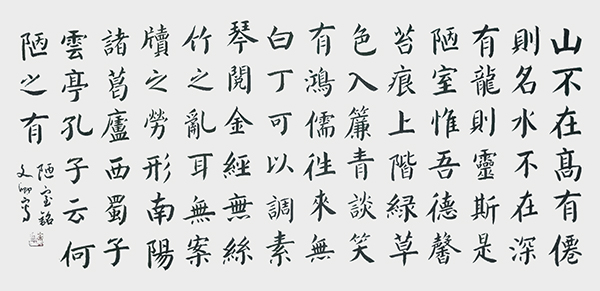 山不在高有僊
則名水不在深
有龍則靈斯是
陋室惟吾德馨
苔痕上階緑草
色入簾青談笑
有鴻儒徃來無
白丁可以調素
琴閱金經無絲
竹之亂耳無案
牘之勞形南陽
諸葛廬西蜀子
雲亭孔子云何
陋之有
陋室銘